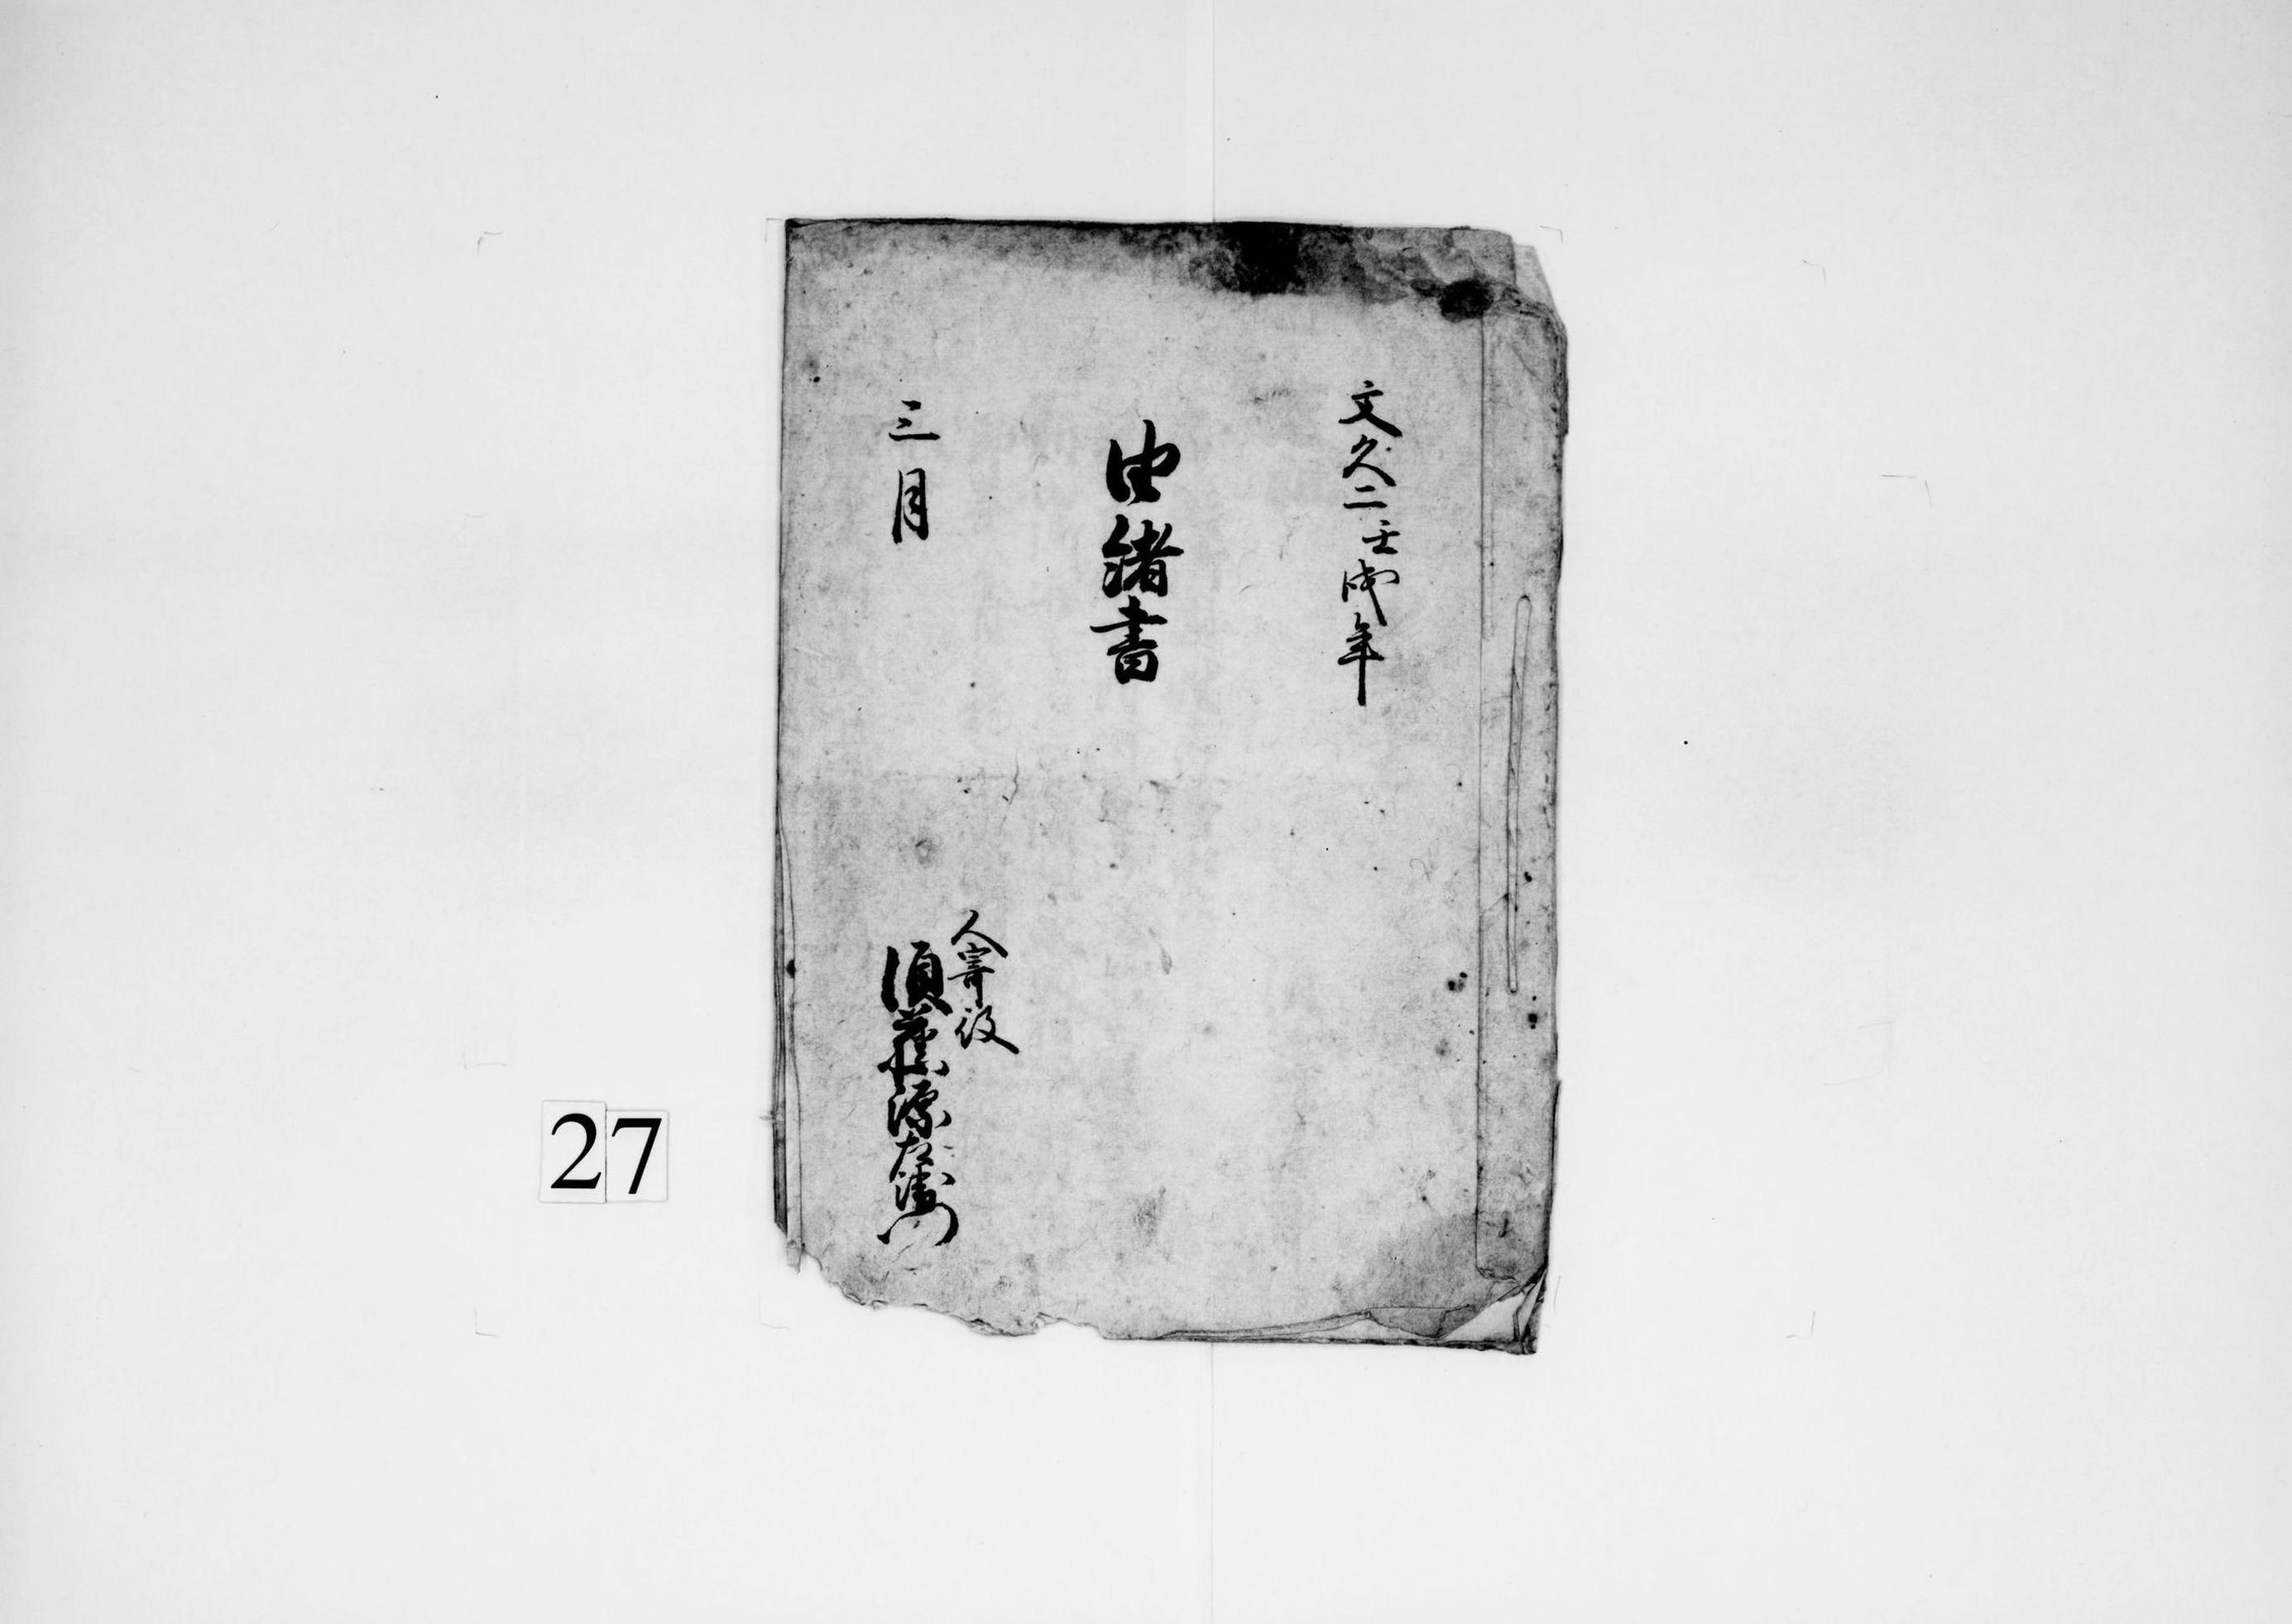 文久二壬戌年
由緒書
三月
人寄役
須藤源左衛門
27